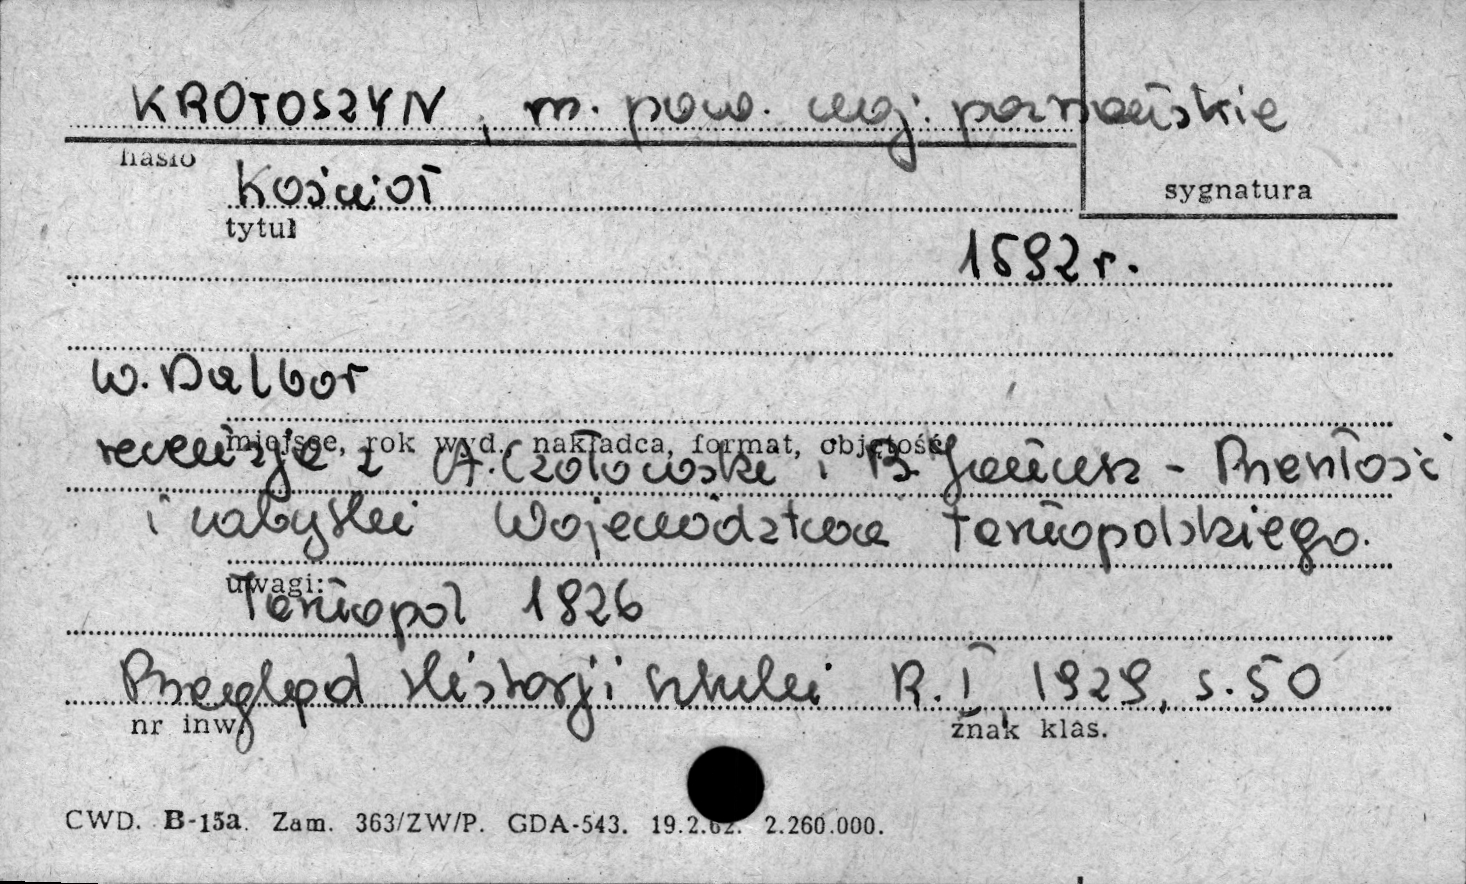 KROTOSZYN, m. pow. woj. poznańskie
hasło
Kościół
sygnatura
tytuł
1592 r.
W. Dalbor
miejsce, rok wyd., nakładca, format, objętość
recenzja z A. Czołowski i B. Janusz - Przeszłość
i zabytki Województwa Tarnopolskiego.
uwagi:
Tarnopol 1926
Przegląd Historji Sztuki R. I 1929, s. 50
nr inw.
znak klas.
CWD. B-15a. Zam. 363/ZW/P. GDA-543. 19.2.62. 2.260.000.